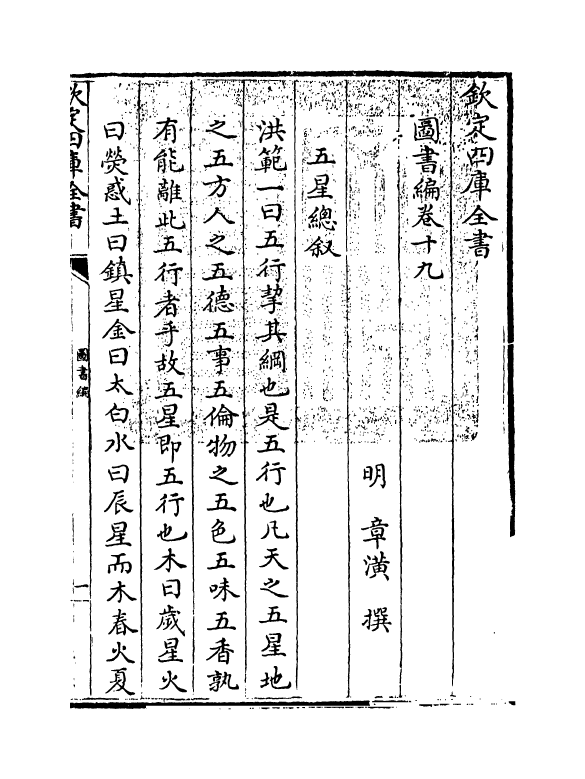 欽定四庫全書
圖書編卷十九
明 章潢 撰
五星總叙
洪範一曰五行挈其綱也是五行也凡天之五星地
之五方人之五德五事五倫物之五色五味五香孰
有能離此五行者乎故五星即五行也木曰歲星火
曰熒惑土曰鎮星金曰太白水曰辰星而木春火夏
欽定四庫全書
圖書編
一